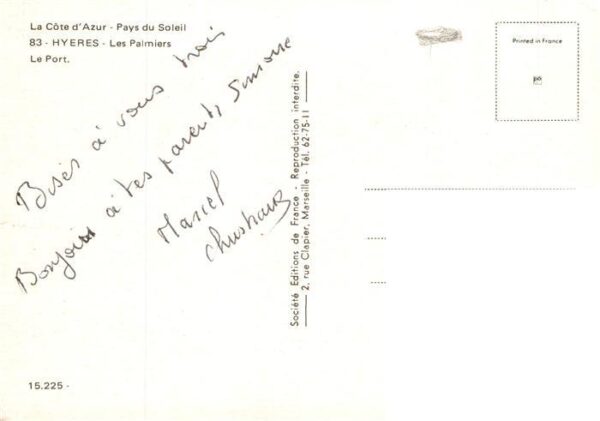 La Côte d'Azur - Pays du Soleil
83 - HYERES - Les Palmiers
Le Port.
Bises à vous trois
Bonjour à tes parents, Simone
Marcel
Société Editions de France - Reproduction interdite.
2, rue Clapier, Marseille - Tél. 62-75-11
Printed in France
15.225 -